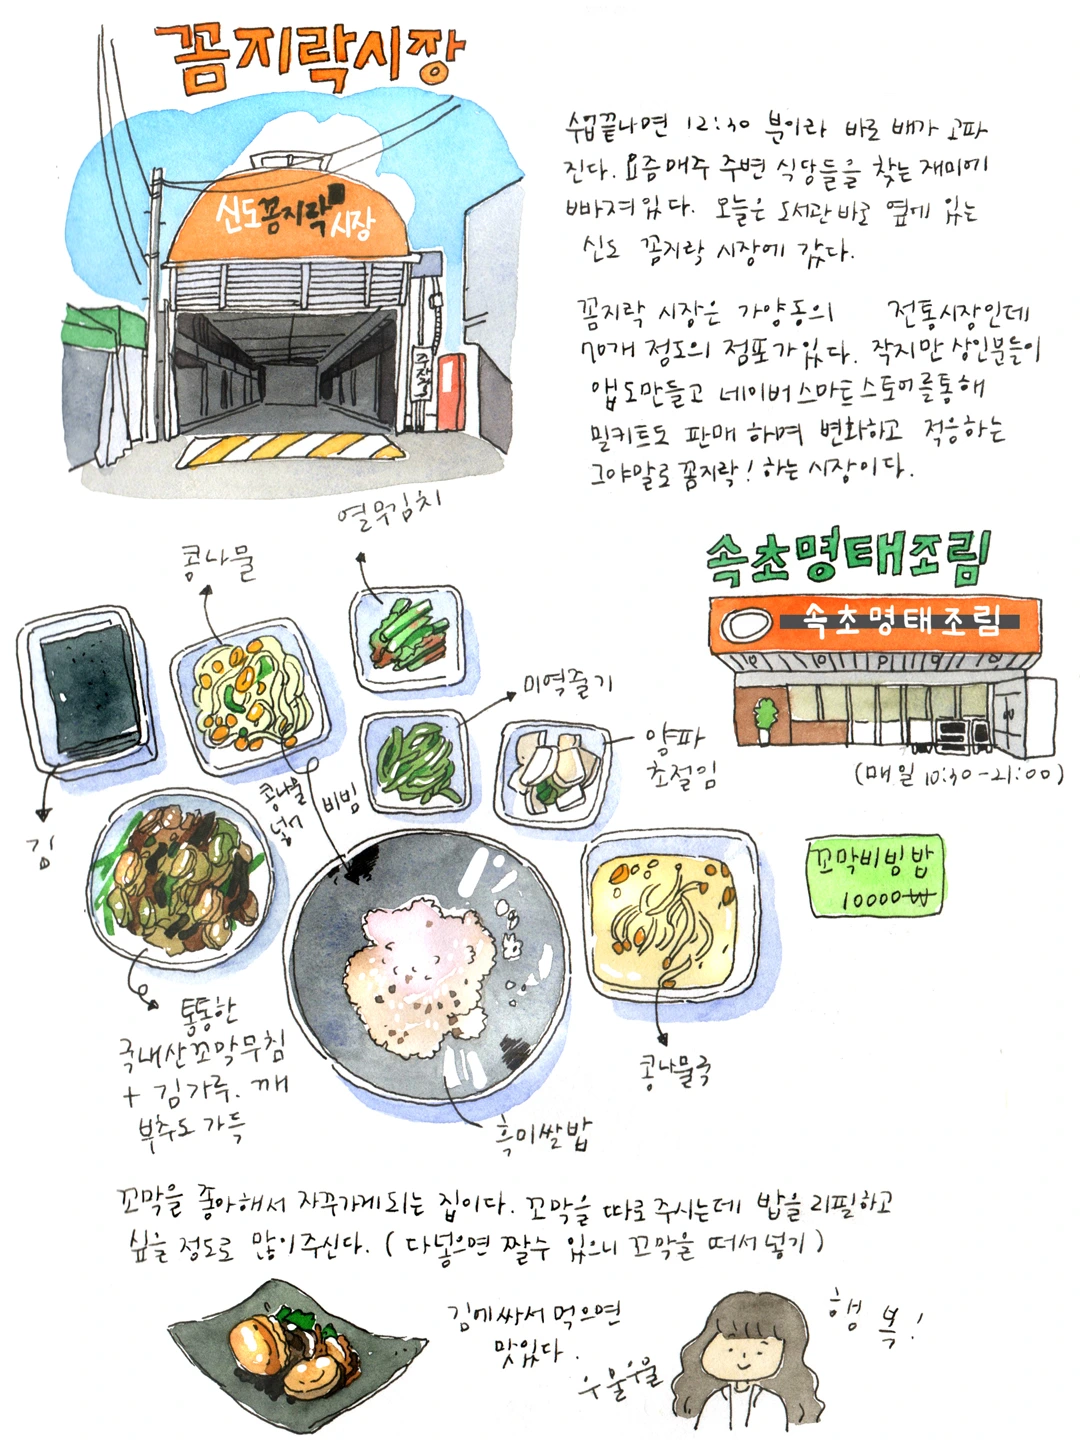 꼼지락시장
신도꼼지락시장
주차장
수업끝나면 12:30 분이라 바로 배가 고파
진다. 요즘매주 주변 식당들을 찾는 재미에
빠져있다. 오늘은 도서관바로 옆에 있는
신도 꼼지락 시장에 갔다.
꼼지락 시장은 가양동의 전통시장인데
70개 정도의 점포가있다. 작지만 상인분들이
앱도만들고 네이버스마트스토어를통해
밀키트도 판매하며 변화하고 적응하는
그야말로꼼지락! 하는 시장이다.
속초명태조림
속초명태조림
(매일 10:30-21:00)
꼬막비빔밥
10000₩
열무김치
콩나물
미역줄기
양파
초절임
김
콩나물
넣어 비빔
통통한
국내산꼬막무침
+ 김가루. 깨
부추도 가득
흑미쌀밥
콩나물국
꼬막을 좋아해서 자꾸가게되는 집이다. 꼬막을 따로주시는데 밥을리필하고
싶을 정도로 많이주신다. (다넣으면 짤수 있으니 꼬막을 떠서넣기)
김에싸서먹으면
맛있다.
우물우물
행복!